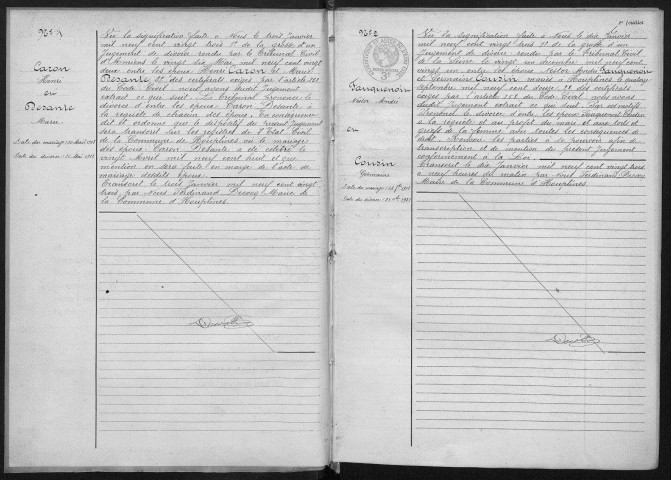 Caron
Henri
et
Desante
Marie
Date du mariage : 20 Avril 1908
Date du divorce : 26 Mai 1922
Vu la signification faite à nous le trois Janvier
mil neuf cent vingt trois 1° de la grosse d'un
Jugement de divorce rendu par le Tribunal Civil
d'Amiens le vingt six Mai, mil neuf cent vingt
deux entre les époux Henri Caron et Marie
Desante 2° des certificats exigés par l'article 252
du Code Civil, nous avons dudit Jugement
extrait ce qui suit. Le Tribunal prononce le
divorce d'entre les époux Caron Desante à
la requête de chacun des époux. En conséquence
dit et ordonne que le dispositif du présent Jugement
sera transcrit sur les registres de l'Etat Civil
de la Commune de Houplines où le mariage
des époux Caron Desante a été célébré le
vingt Avril mil neuf cent huit et que
mention en sera faite en marge de l'acte de
mariage desdits époux.
Transcrit le trois Janvier mil neuf cent vingt
trois, par nous Ferdinand Maire de
la Commune d'Houplines.
1er feuillet
Fauquenoit
Nestor André
et
Cousin
Germaine
Date du mariage :
Date du divorce :
Vu la signification faite à nous le dix Janvier
mil neuf cent vingt trois 1° de la grosse d'un
Jugement de divorce rendu par le Tribunal Civil
de la Seine le vingt un décembre mil neuf cent
vingt un entre les époux Nestor André Fauquenoit
et Germaine Cousin mariés à Houplines le
septembre mil neuf cent douze 2° des certificats
exigés par l'article 252 du Code Civil nous avons
dudit Jugement extrait ce qui suit. Par ces motifs
Prononce le divorce d'entre les époux Fauquenoit Cousin
à la requête et au profit du mari et aux torts et
griefs de la femme avec toutes les conséquences de
droit. Renvoie les parties à se pourvoir afin de
transcription et de mention du présent Jugement
conformément à la Loi.
Transcrit le dix Janvier mil neuf cent vingt trois
à neuf heures du matin par nous Ferdinand
Maire de la Commune d'Houplines.